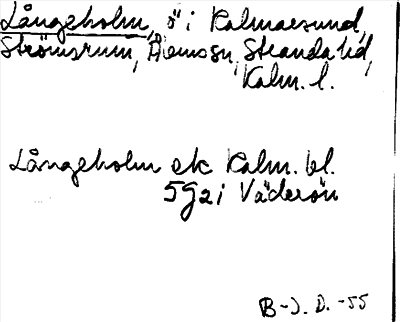 Långeholm, ö i Kalmaresund,
Strömsrum, Ålems sn, Stranda hd,
Kalm. l.
Långeholm ek Kalm. bl.
5 G 2 i Väderön
B-J. D. -55